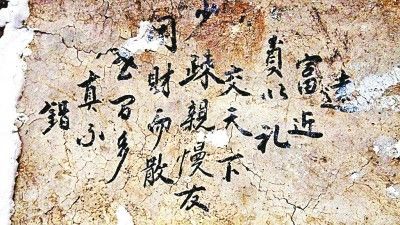 遠富近
貴以礼
交天下
少疎親慢友
同財而散
世百多
真不
錯